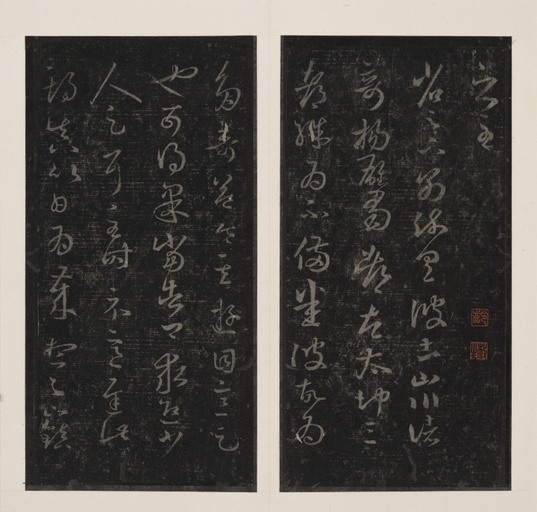 省足下別疏具彼土山川諸
奇揚雄蜀都左太沖三
都殊為不備悉彼故為
多奇益令其遊目意足
也可得果當告卿求迎少
人足耳至時示意遲此
期真以日為歲想足下鎮